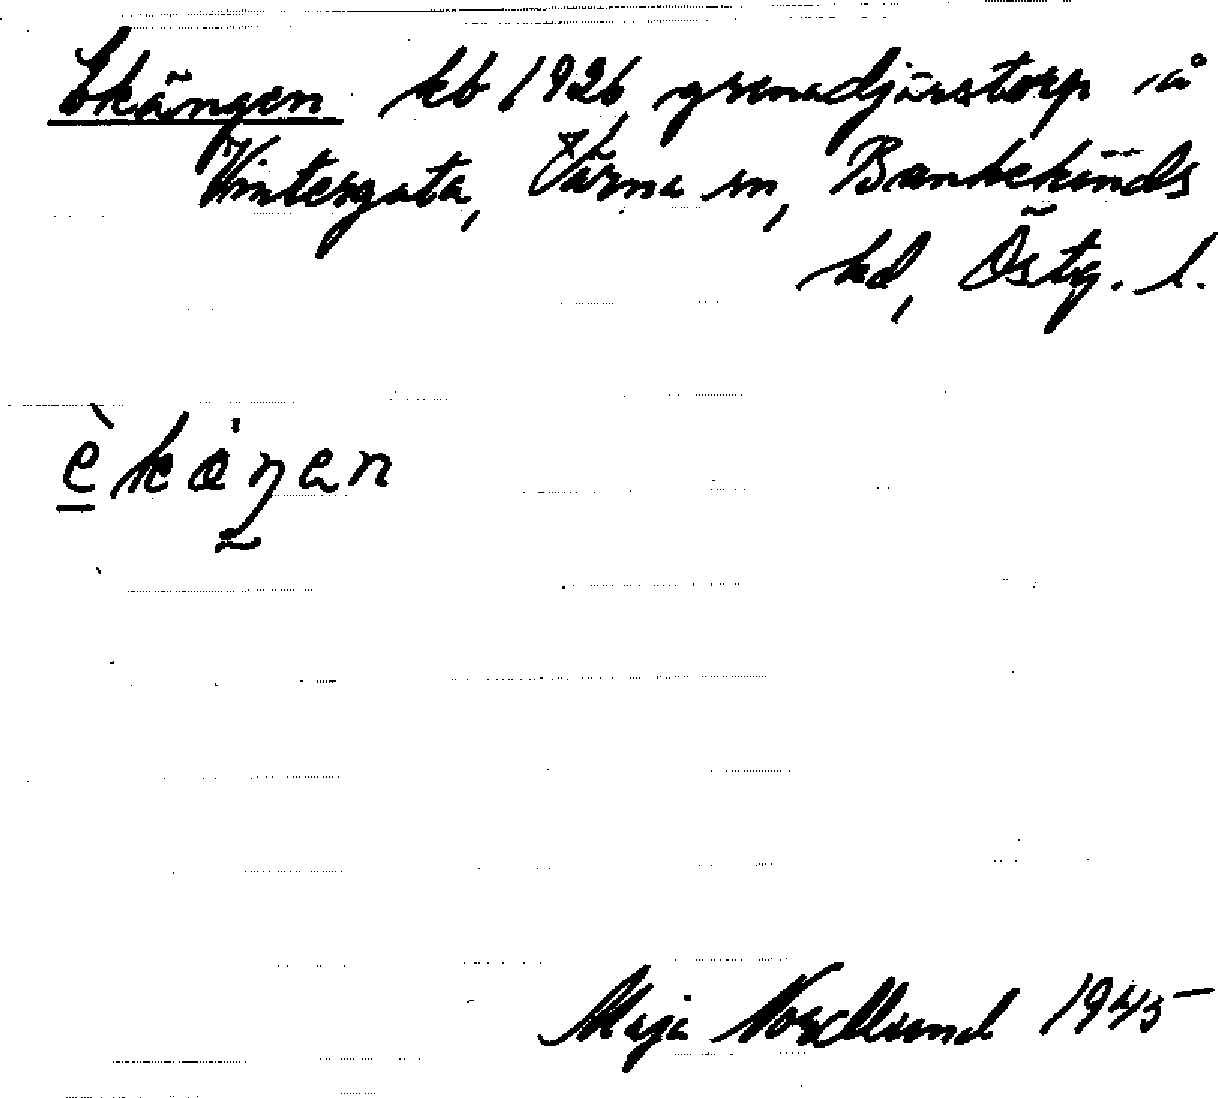 Ekängen kb 1926 grenadjärstorp å
Vintergata, Värna sn, Bankekinds
hd, Östg. l.
èkäŋen
Maja Nordlund 1945